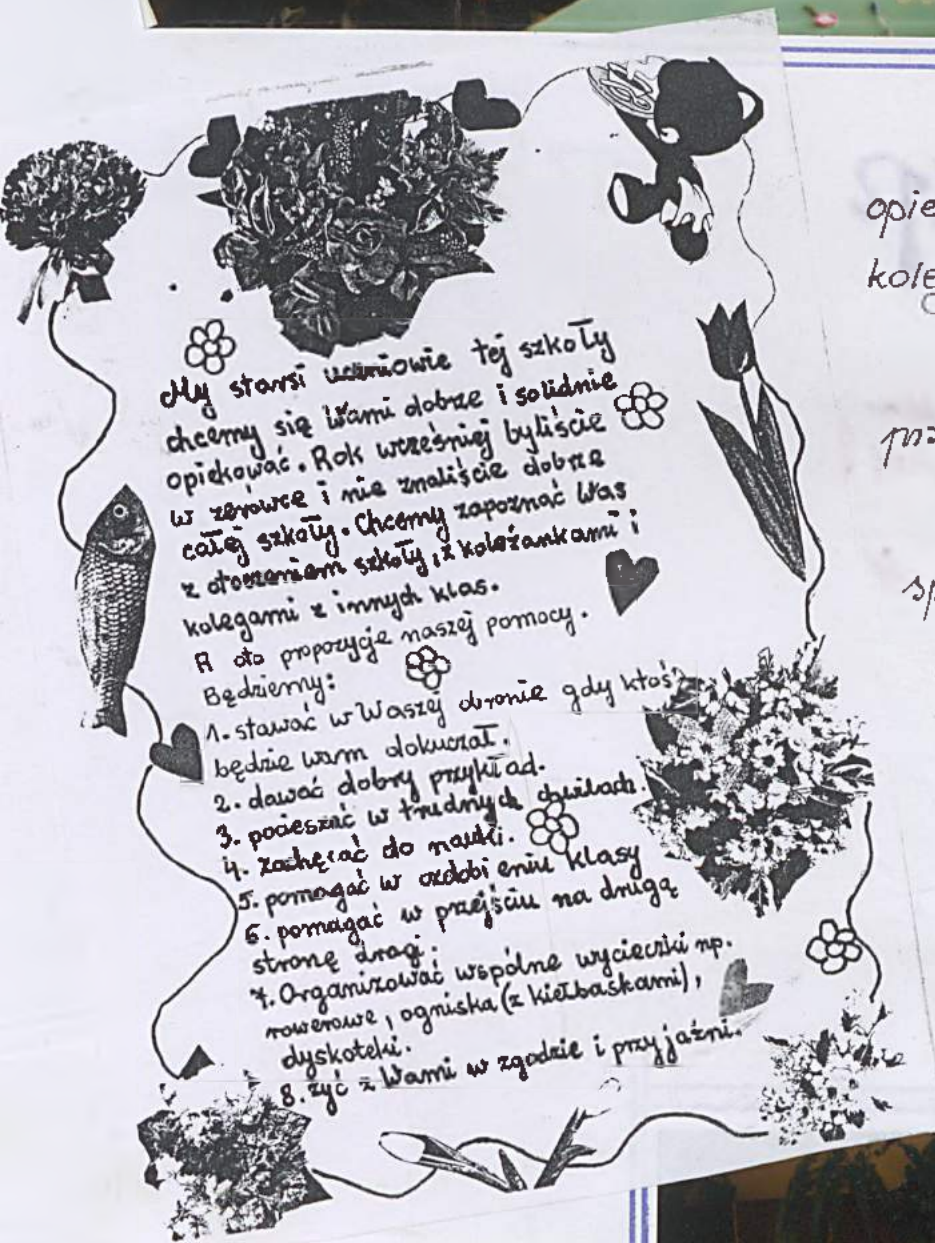 My starsi uczniowie tej szkoły
chcemy się Wami dobrze i solidnie
opiekować. Rok wcześniej byliście
w zerówce i nie znaliście dobrze
całej szkoły. Chcemy zapoznać Was
z otoczeniem szkoły, z koleżankami i
kolegami z innych klas.
A oto propozycje naszej pomocy.
Będziemy:
1. stawać w Waszej obronie gdy ktoś
będzie wam dokuczał.
2. dawać dobry przykład.
3. pocieszać w trudnych chwilach.
4. zachęcać do nauki.
5. pomagać w ozdobieniu klasy
6. pomagać w przejściu na drugą
stronę drogi.
7. Organizować wspólne wycieczki np.
rowerowe, ogniska (z kiełbaskami),
dyskoteki.
8. żyć z Wami w zgodzie i przyjaźni.
opie
kole
prz
sp